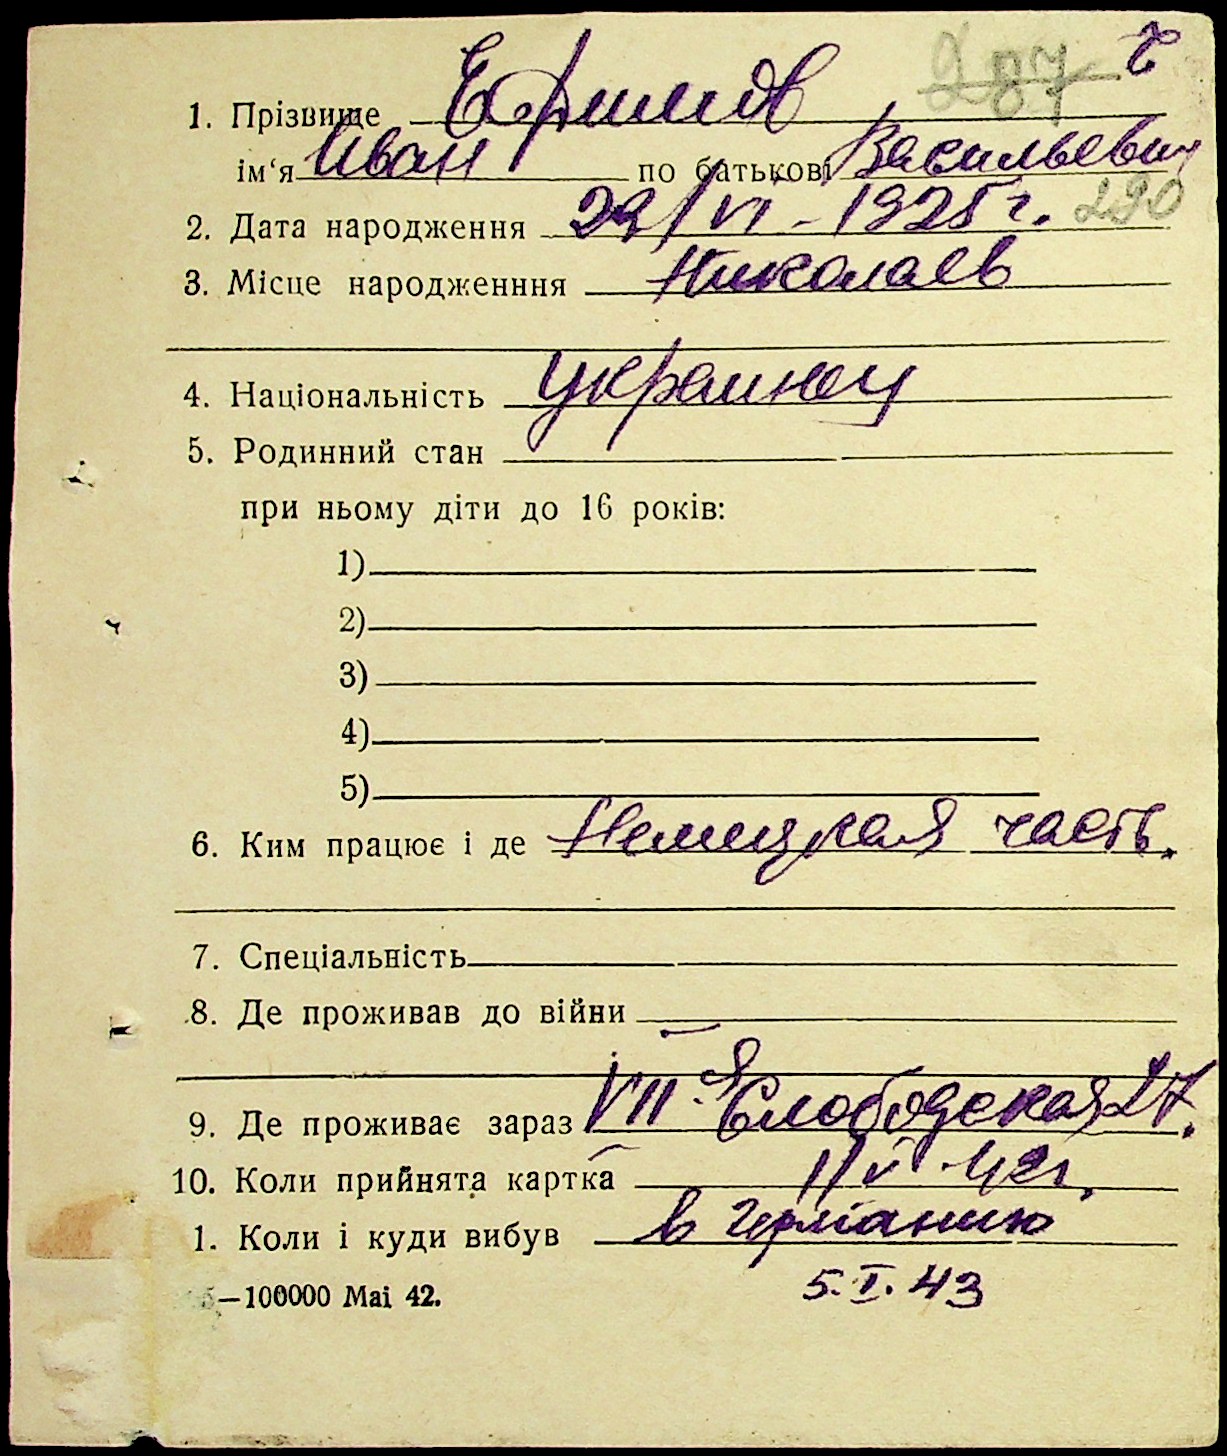 287 г
1. Прізвище Ефимов
ім‘я Иван по батькові Васильевич
2. Дата народження 29/VI - 1925 г. 290
3. Місце народженння Николаев
4. Національність украинец
5. Родинний стан
при ньому діти до 16 років:
1)
2)
3)
4)
5)
6. Ким працює і де Немецкая часть.
7. Спеціальність
8. Де проживав до війни
9. Де проживає зараз VII-я Слободская 27.
10. Коли прийнята картка 1/V 42 г.
1. Коли і куди вибув в Германию
5–100000 Mai 42. 5.I.43